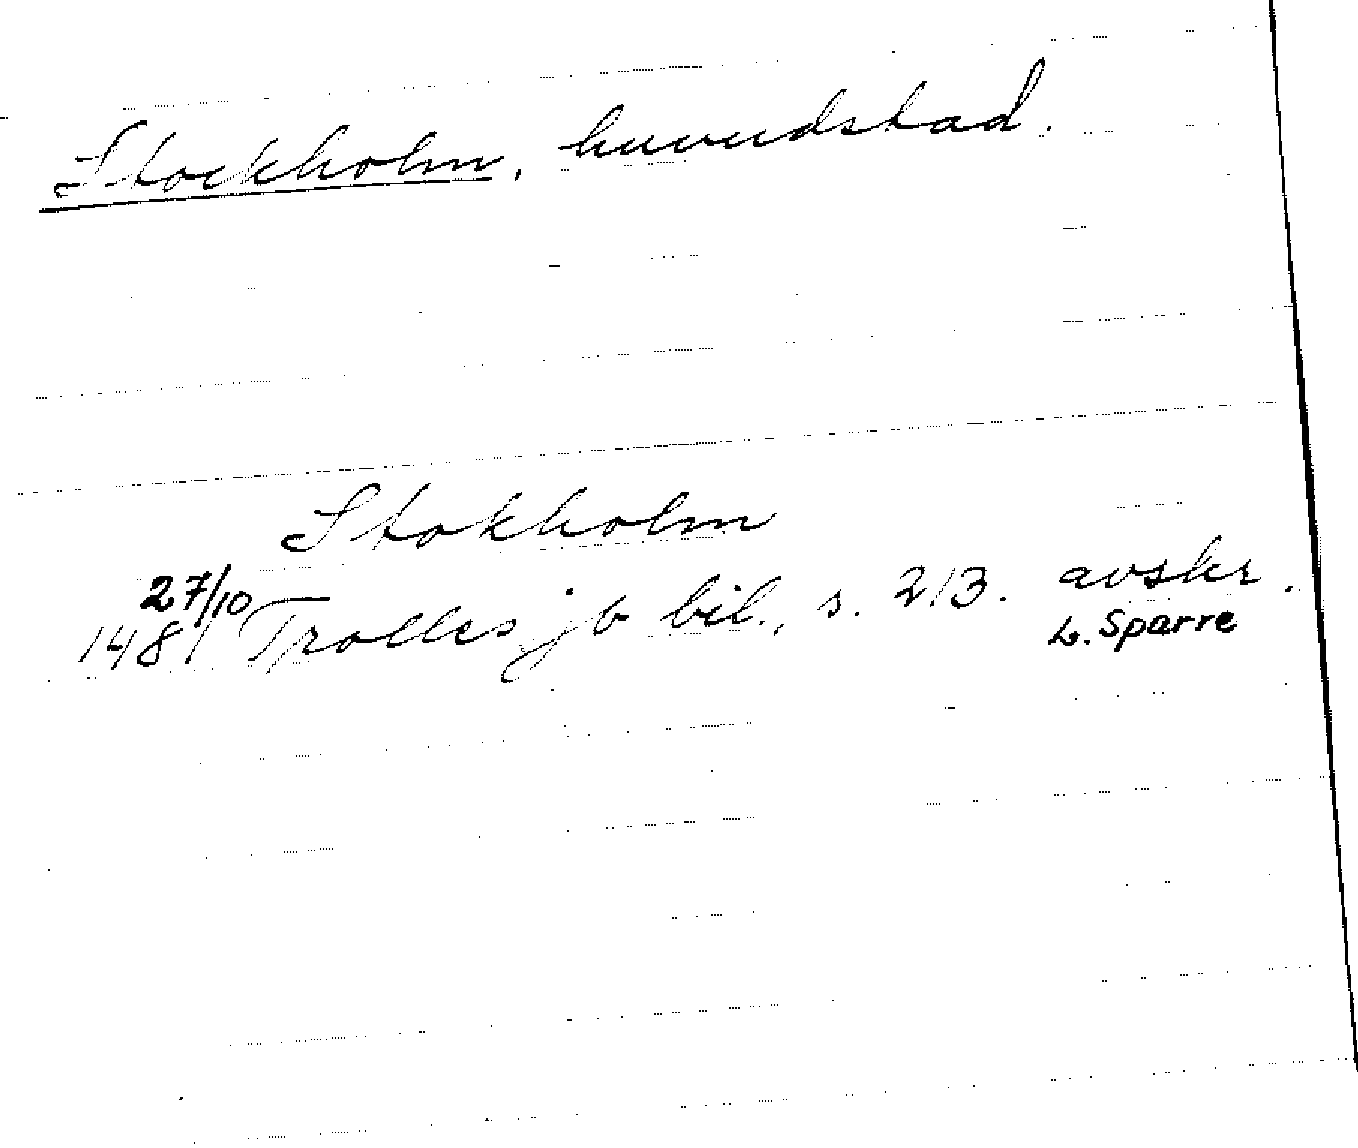 Stockholm, huvudstad.
Stokholm
27/10
1481 Trolles jb bil., s. 213. avskr.
L. Sparre